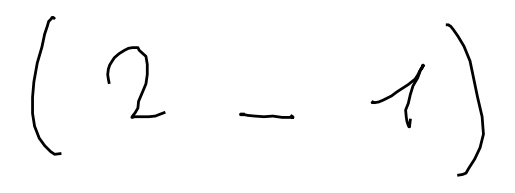 ( 2 - 1 )